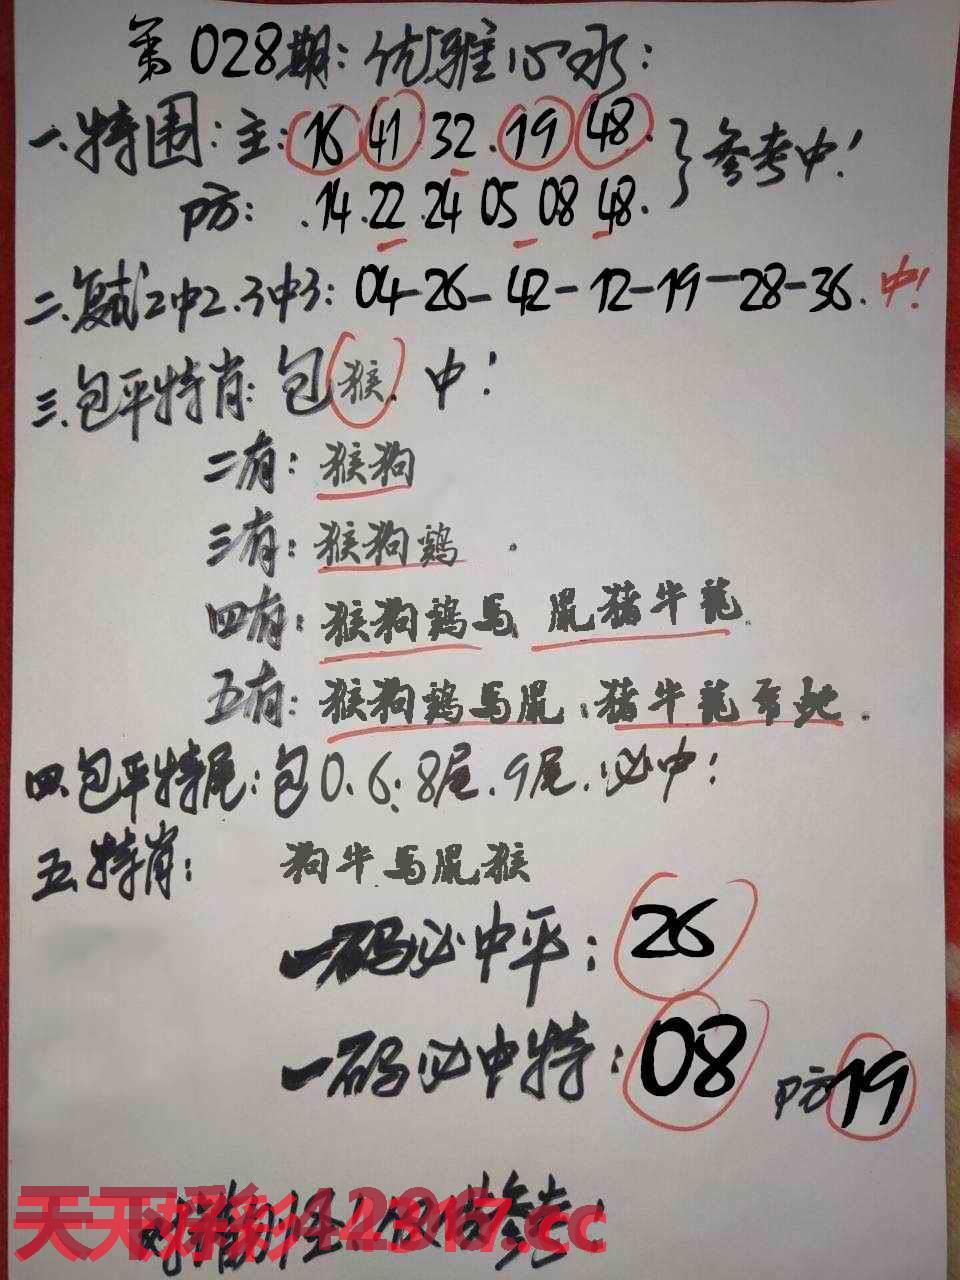 第028期:优雅心水:
一.特围:主:16 41 32.19 48. }参考中!
防:.14.22 24 05 08 48.
二.复试2中2.3中3:04-26-42-12-19-28-36.中!
三.包平特肖:包猴.中!
二有:猴狗
三有:猴狗鸡.
四有:猴狗鸡马 鼠猪牛龍
五有:猴狗鸡馬鼠:猪牛龍
四.包平特尾:包0.6:8尾.9尾.必中:
五.特肖: 狗牛马鼠猴
一码必中平:26
一码必中特:08 防19
天下彩
.cc